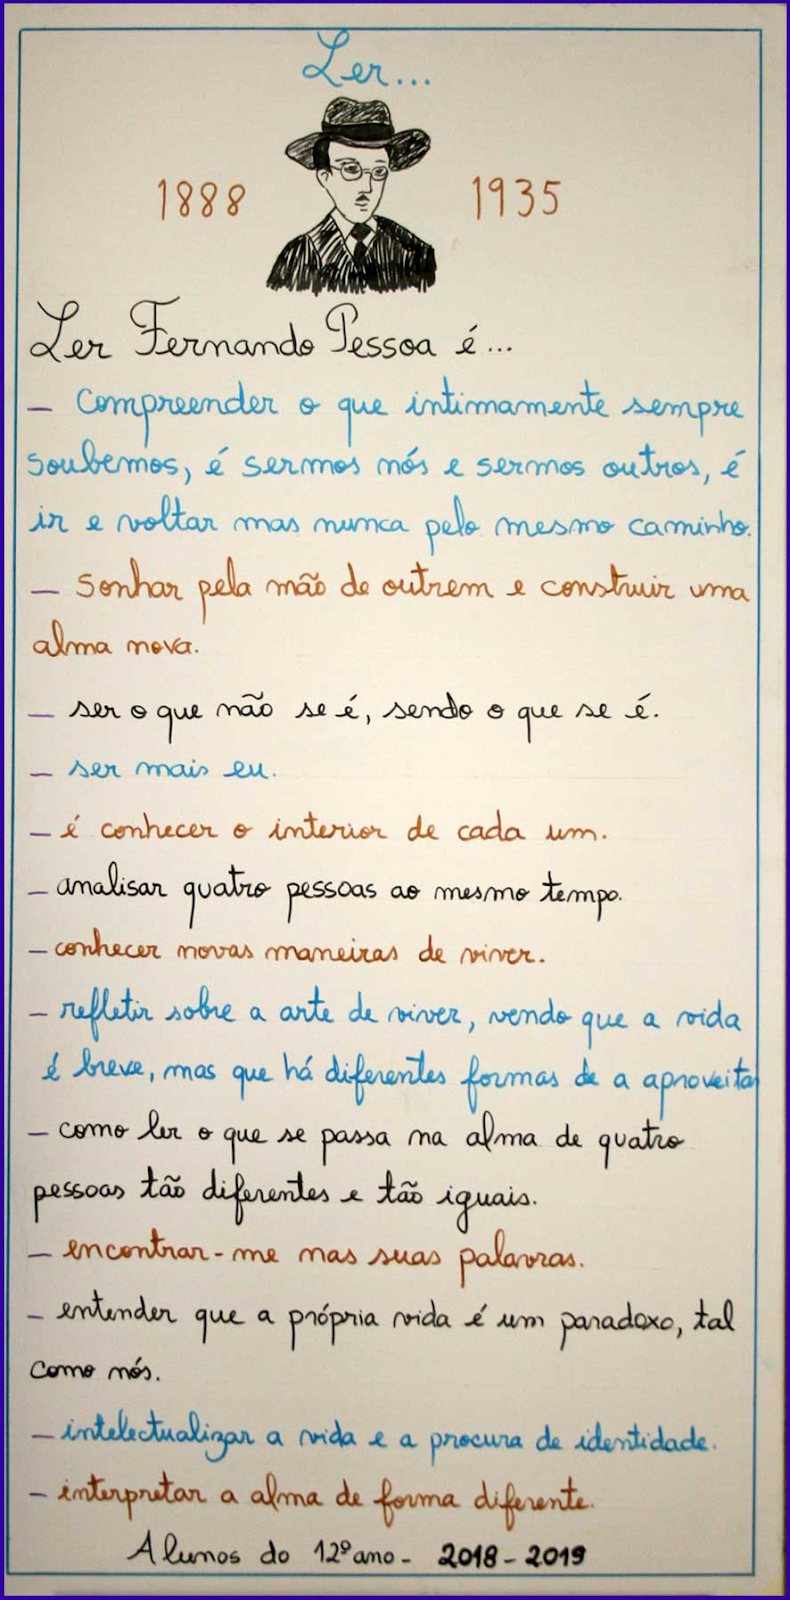 Ler...
1888 1935
Ler Fernando Pessoa é...
– Compreender o que intimamente sempre
soubemos, é sermos nós e sermos outros, é
ir e voltar mas nunca pelo mesmo caminho.
– Sonhar pela mão de outrem e construir uma
alma nova.
– ser o que não se é, sendo o que se é.
– ser mais eu.
– é conhecer o interior de cada um.
– analisar quatro pessoas ao mesmo tempo.
– conhecer novas maneiras de viver.
– refletir sobre a arte de viver, vendo que a vida
é breve, mas que há diferentes formas de a aproveitar
– como ler o que se passa na alma de quatro
pessoas tão diferentes e tão iguais.
– encontrar-me nas suas palavras.
– entender que a própria vida é um paradoxo, tal
como nós.
– intelectualizar a vida e a procura de identidade.
– interpretar a alma de forma diferente.
Alunos do 12º ano - 2018 - 2019